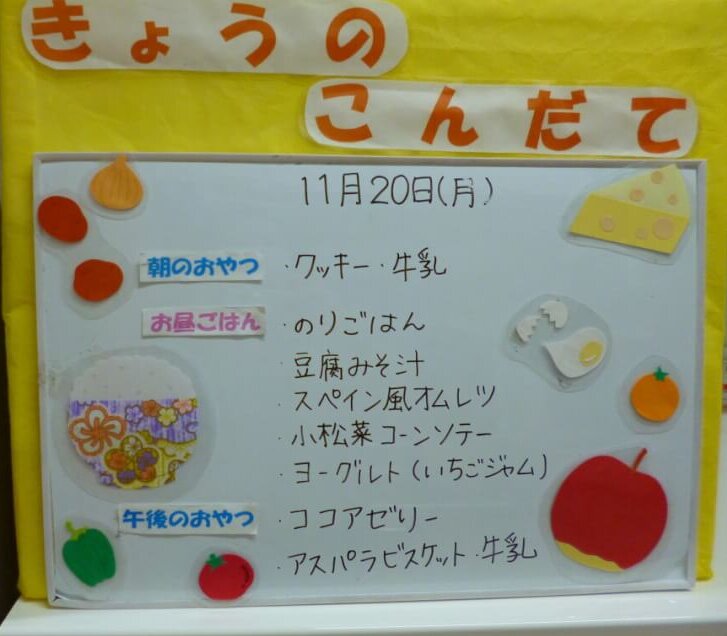 きょうの
こんだて
11月20日(月)
朝のおやつ ・クッキー・牛乳
お昼ごはん ・のりごはん
・豆腐みそ汁
・スペイン風オムレツ
・小松菜コーンソテー
・ヨーグルト(いちごジャム)
午後のおやつ ・ココアゼリー
・アスパラビスケット・牛乳